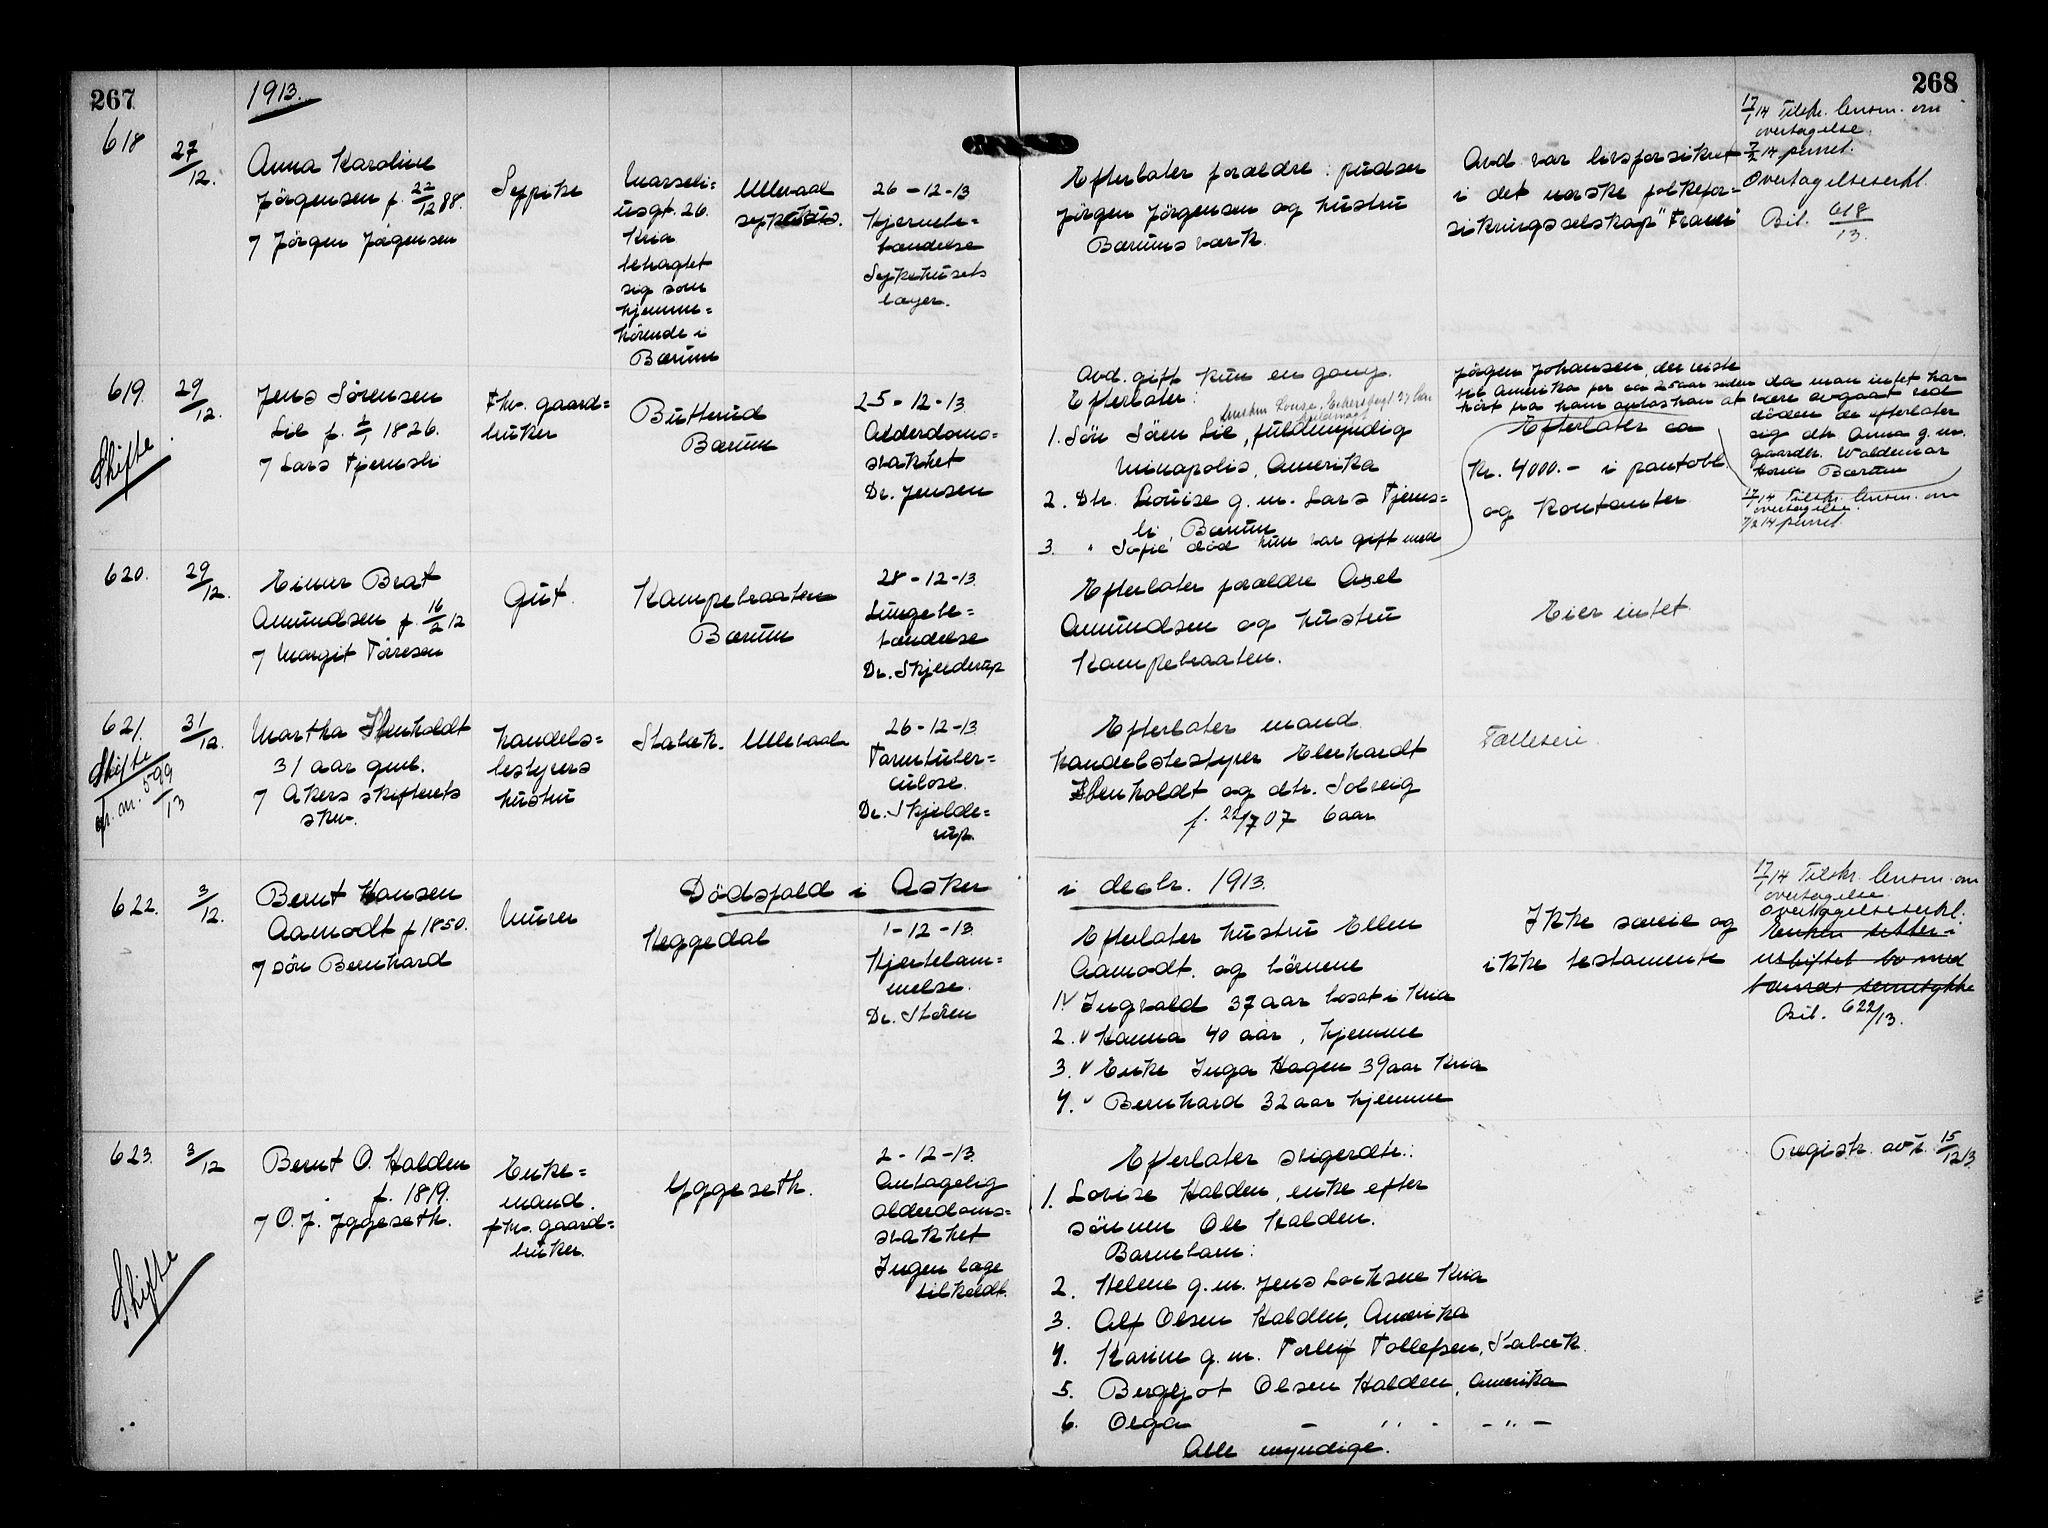 267
1913.
618
27/12.
Anna Karoline
Jørgensen f. 22/12 88.
7 Jørgen Jørgensen
Sypike
Marseli=
usgt. 26.
Kria
betragtet
sig som
hjemme=
hørende i
Bærum
Ullevaal
sykehus.
26-12-13
Hjernebe=
tændelse
Sykehusets
læger.
619.
29/12.
Skifte
Jens Sørensen
Lie f. 1/1 1826.
7 Lars Tjernsli
Fhv. gaard=
bruker
Butterud
Bærum
25-12-13
Alderdoms=
svakhet
Dr. Jensen
620.
29/12.
Einar Brat
Amundsen f. 16/2 12
7 Margit Torresen
Gut.
Kampebraaten
Bærum
28-12-13.
Lungebe=
tændelse
Dr. Skjerderup
621.
31/12.
Skifte
fr. nr. 599/13
Martha Ibenholdt
31 aar gml.
7 Akers skifterets
skr.
Handels=
bestyrers
hustru
Stabæk.
Ullevaal
26-12-13
Tarmtuber=
culose.
Dr. Skjelde=
rup.
622.
3/12.
Bernt Hansen
Aamodt f 1850.
7 søn Bernhard
Murer
Dødsfald i Asker
Heggedal
1-12-13.
Hjertelam=
melse.
Dr. Støren
623.
3/12
Skifte
Bernt O. Halden
f. 1819.
7 O. J. Iggeseth.
Enke=
mand.
fhv. gaard=
bruker.
Yggeseth.
2-12-13.
Antagelig
alderdoms=
svakhet
Ingen læge
tilkaldt.
268
Efterlater forældre: pudser
Jørgen Jørgensen og hustru
Bærums værk.
Avd var livsforsikret
i det norske folkefor=
sikringsselskap "Fram"
17/1 14 Tilskr. lensm. om
overtagelse.
7/2 14 purret.
Overtagelseserkl.
Bil. 618/13.
Avd. gift kun en gang.
Efterlater:
1. Søn Søren Lie, fuldmyndig
Minapolis, Amerika
2. Dtr. Louise g. m. Lars Tjerns=
li Bærum
3. " Sofie død hun var gift med
Jørgen Johansen, der reiste
til Amerika for ca 25 aar siden da man intet har
hørt fra ham antas han at være avgaat ved
døden de efterlater
sig dtr. Anna g. m.
gaardbr. Waldemar
Horni Bærum
Efterlater ca
Kr. 4000.- i pantobl.
og kontanter
17/1 14 Tilskr. lensm. om
overtagelse.
7/2 14 purret
Efterlater forældre Axel
Amundsen og hustru
Kampebraaten.
Eier intet
Efterlater mand
handelsbestyrer Eberhardt
Ibenholdt og dtr. Solveig
f. 22/7 07 6 aar
Fælleseie.
i decbr. 1913.
Efterlater hustru Ellen
Aamodt. og børnene
1. v Ingvald 37 aar bosat i Kria
2. v Hanna 40 aar, hjemme
3. v Enke Inga Hagen 39 aar Kria
4. v Bernhard 32 aar hjemme
Ikke særeie og
ikke testamente
17/1 14 Tilskr. lensm. om
overtagelse
overtagelseserkl.
Enken sitter i
uskiftet bo med
barnas samtykke
Bil. 622/13.
Efterlater svigerdtr.:
1. Lovise Halden, enke efter
sønnen Ole Halden.
Barnebarn:
2. Helene g. m. Jens Isachsen Kria
3. Alf Olsen Halden, Amerika
4. Karine g. m. Torleif Tollefsen, Stabæk.
5. Bergljot Olsen Halden, Amerika
6. Olga - " - - " -
Alle myndige.
Registr. avh. 15/12 13.